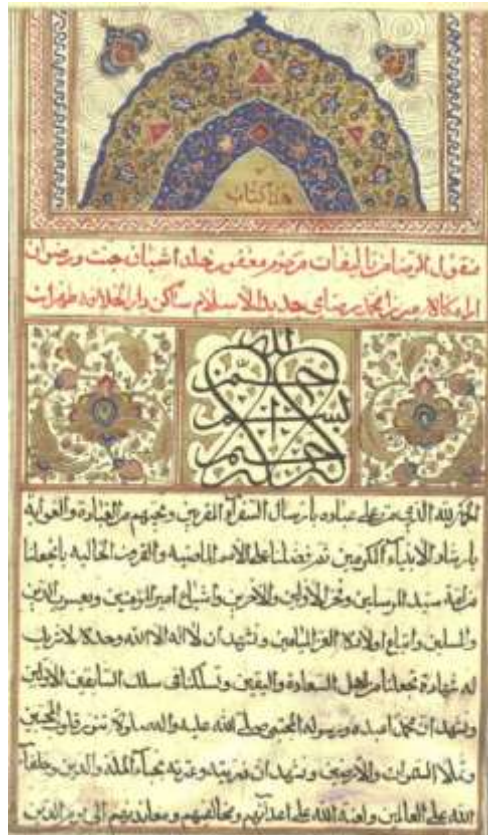 هذا کتاب
منقول الرضا من تالیفات مرحوم مغفور خلد اشیان جنت و رضوان
میرزا محمد رضای جدید الاسلام ساکن دار الخلافه طهران
بسم الله الرحمن الرحیم
الحمد لله الذی من علی عباده بارسال السفرآء المقربین ونجیهم من الغباوة والغوایة
بارشاد الانبیاء الاکرمین ثم فضلنا علی الامم الماضیه والقرون الخالیه بان جعلنا
من امة سید المرسلین وفخر الاولین والاخرین واشیاع امیر المؤمنین ویعسوب الدین
والمسلمین واتباع اولاده الغر المیامین ونشهد ان لا اله الا الله وحده لا شریک
له شهادة تجعلنا من اهل السعادة والیقین وتسلکنا فی سلک السابقین الاولین
ونشهد ان محمدا عبده ورسوله المجتبی صلی الله علیه واله صلوة تنور قلوب المحبین
وتملأ السموات والارضین ونشهد ان ذریته وعترته نجبآء الملة والدین وخلفآء
الله علی العالمین ولعنة الله علی اعدائهم ومخالفیهم ومعاندیهم الی یوم الدین